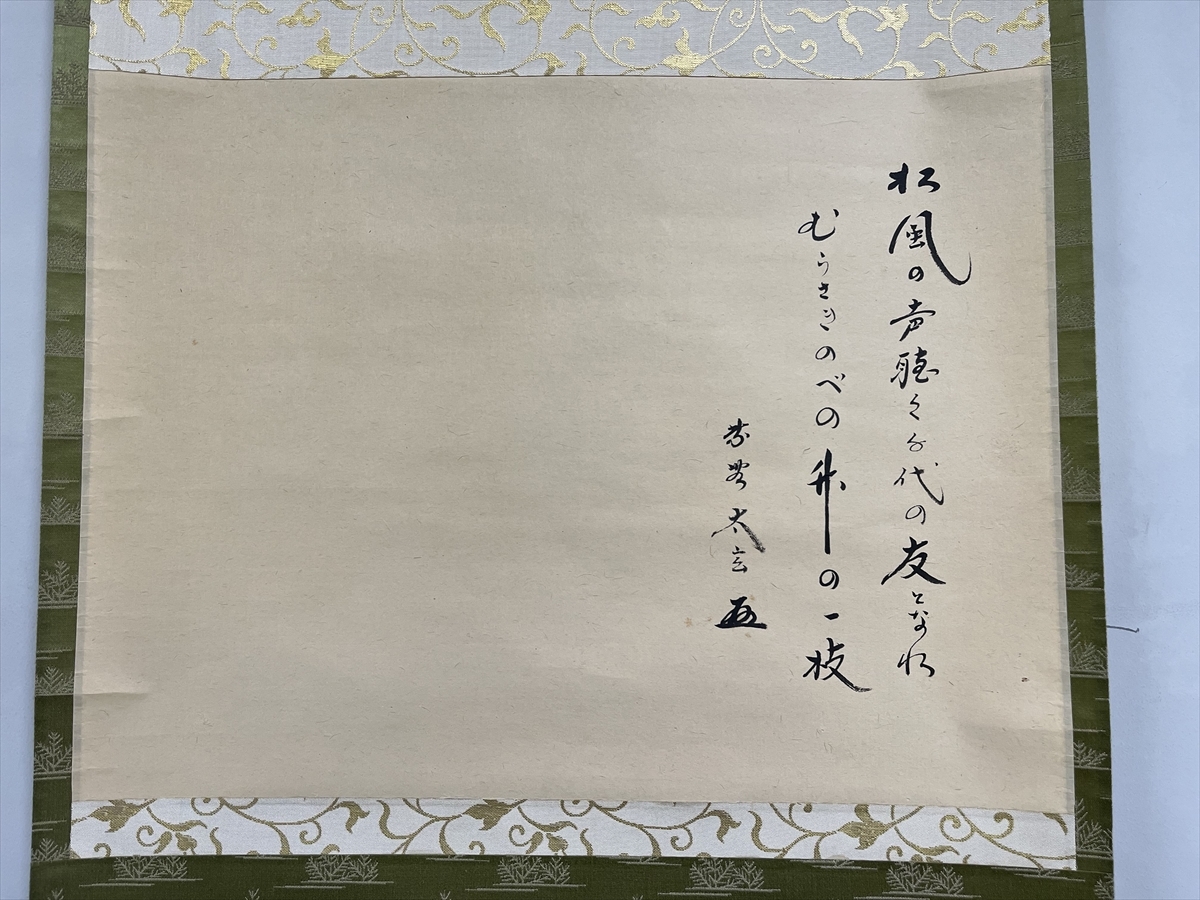 松風の声聴く千代の友となれ
むらさきのべの竹の一枝
太玄